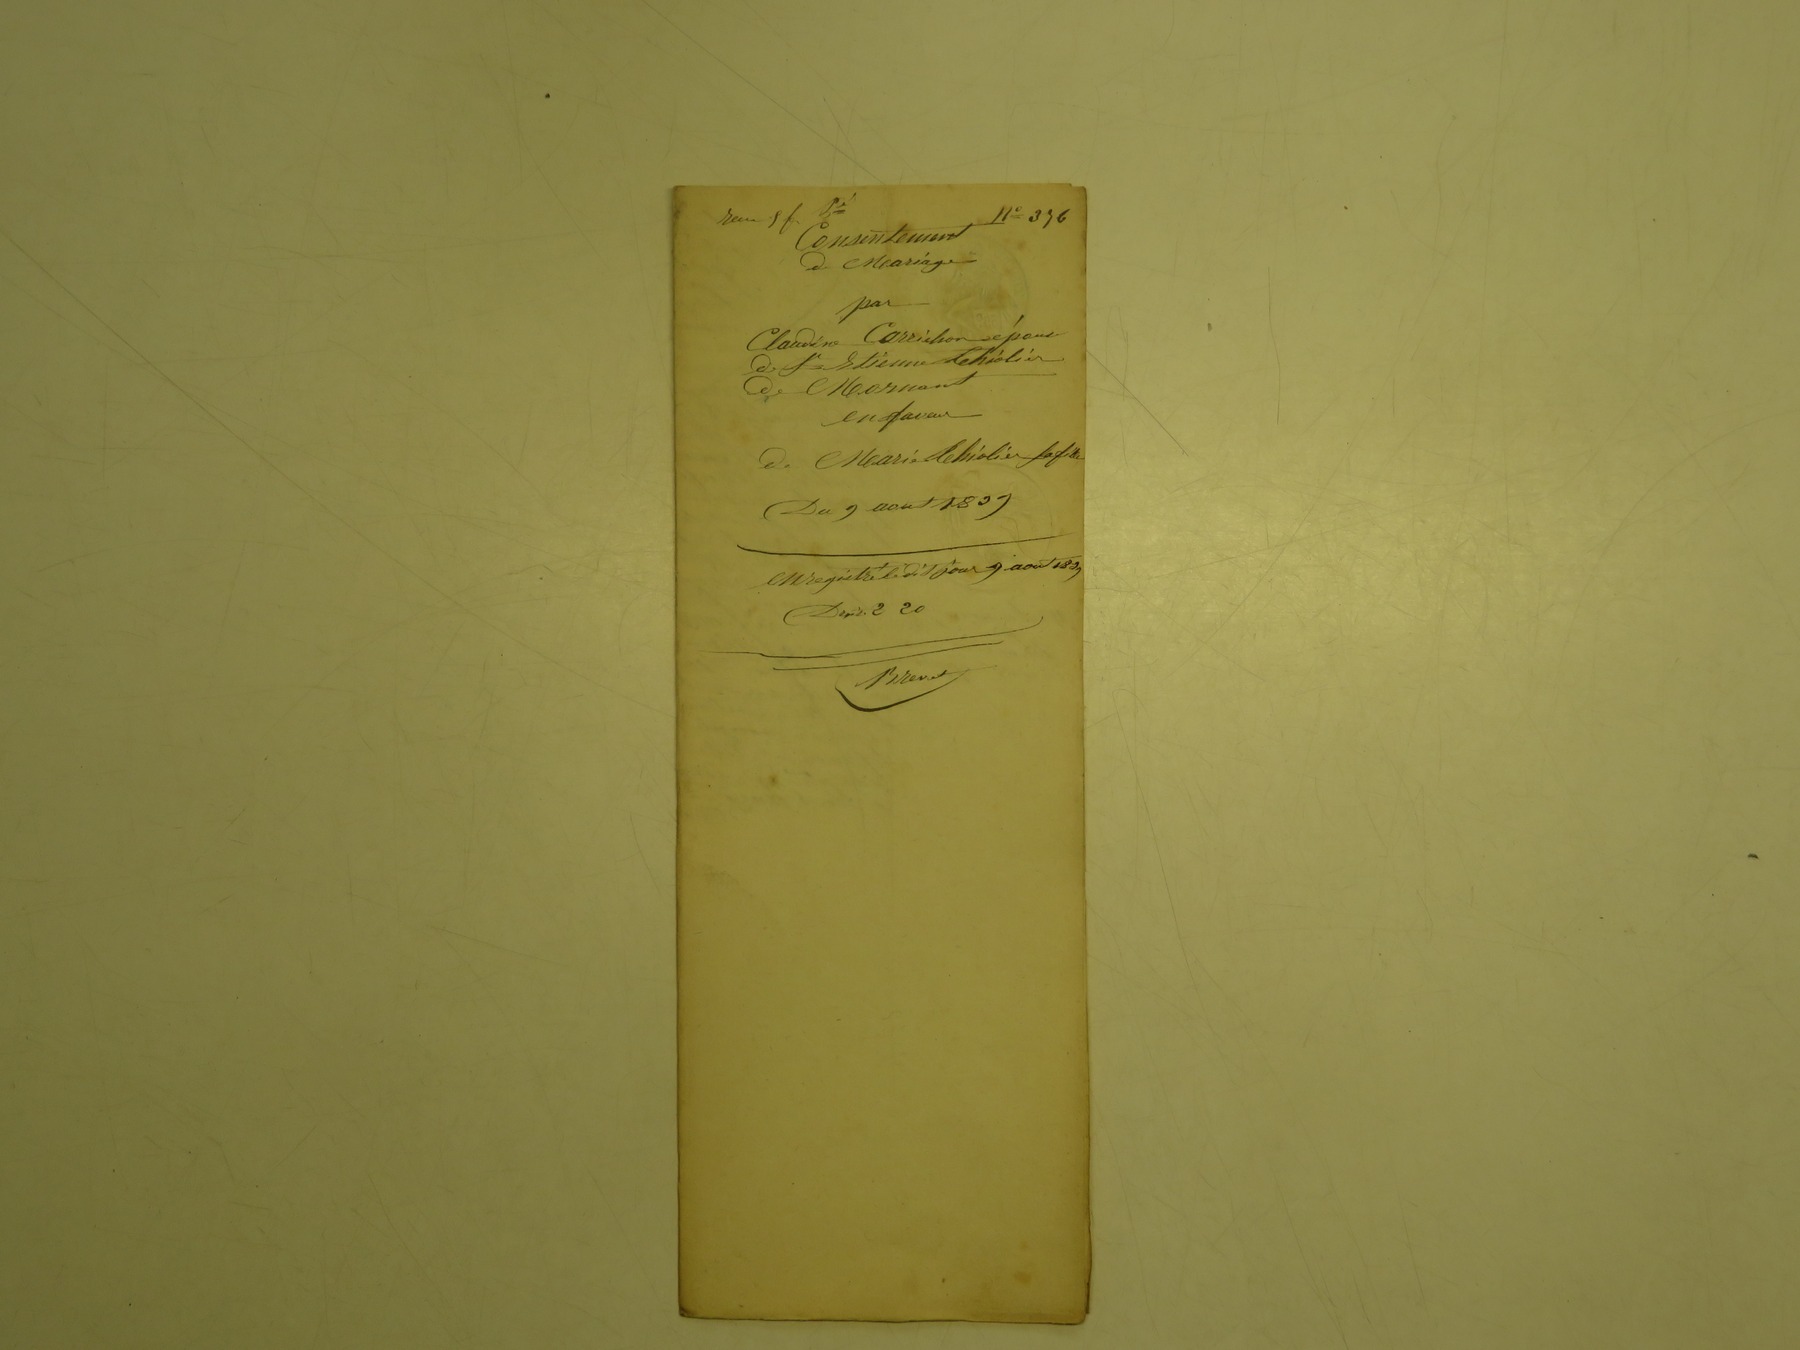 Pé N° 376
Consentement
de Mariage
par
Claudine Carrichon épouse
de Sr Etienne Thiolier
de Mornant
en faveur
de Marie Thiolier sa fille
Du 9 aout 1839
Enregistré le dit jour 9 aout 1839
Droit. 2 20
Brevet